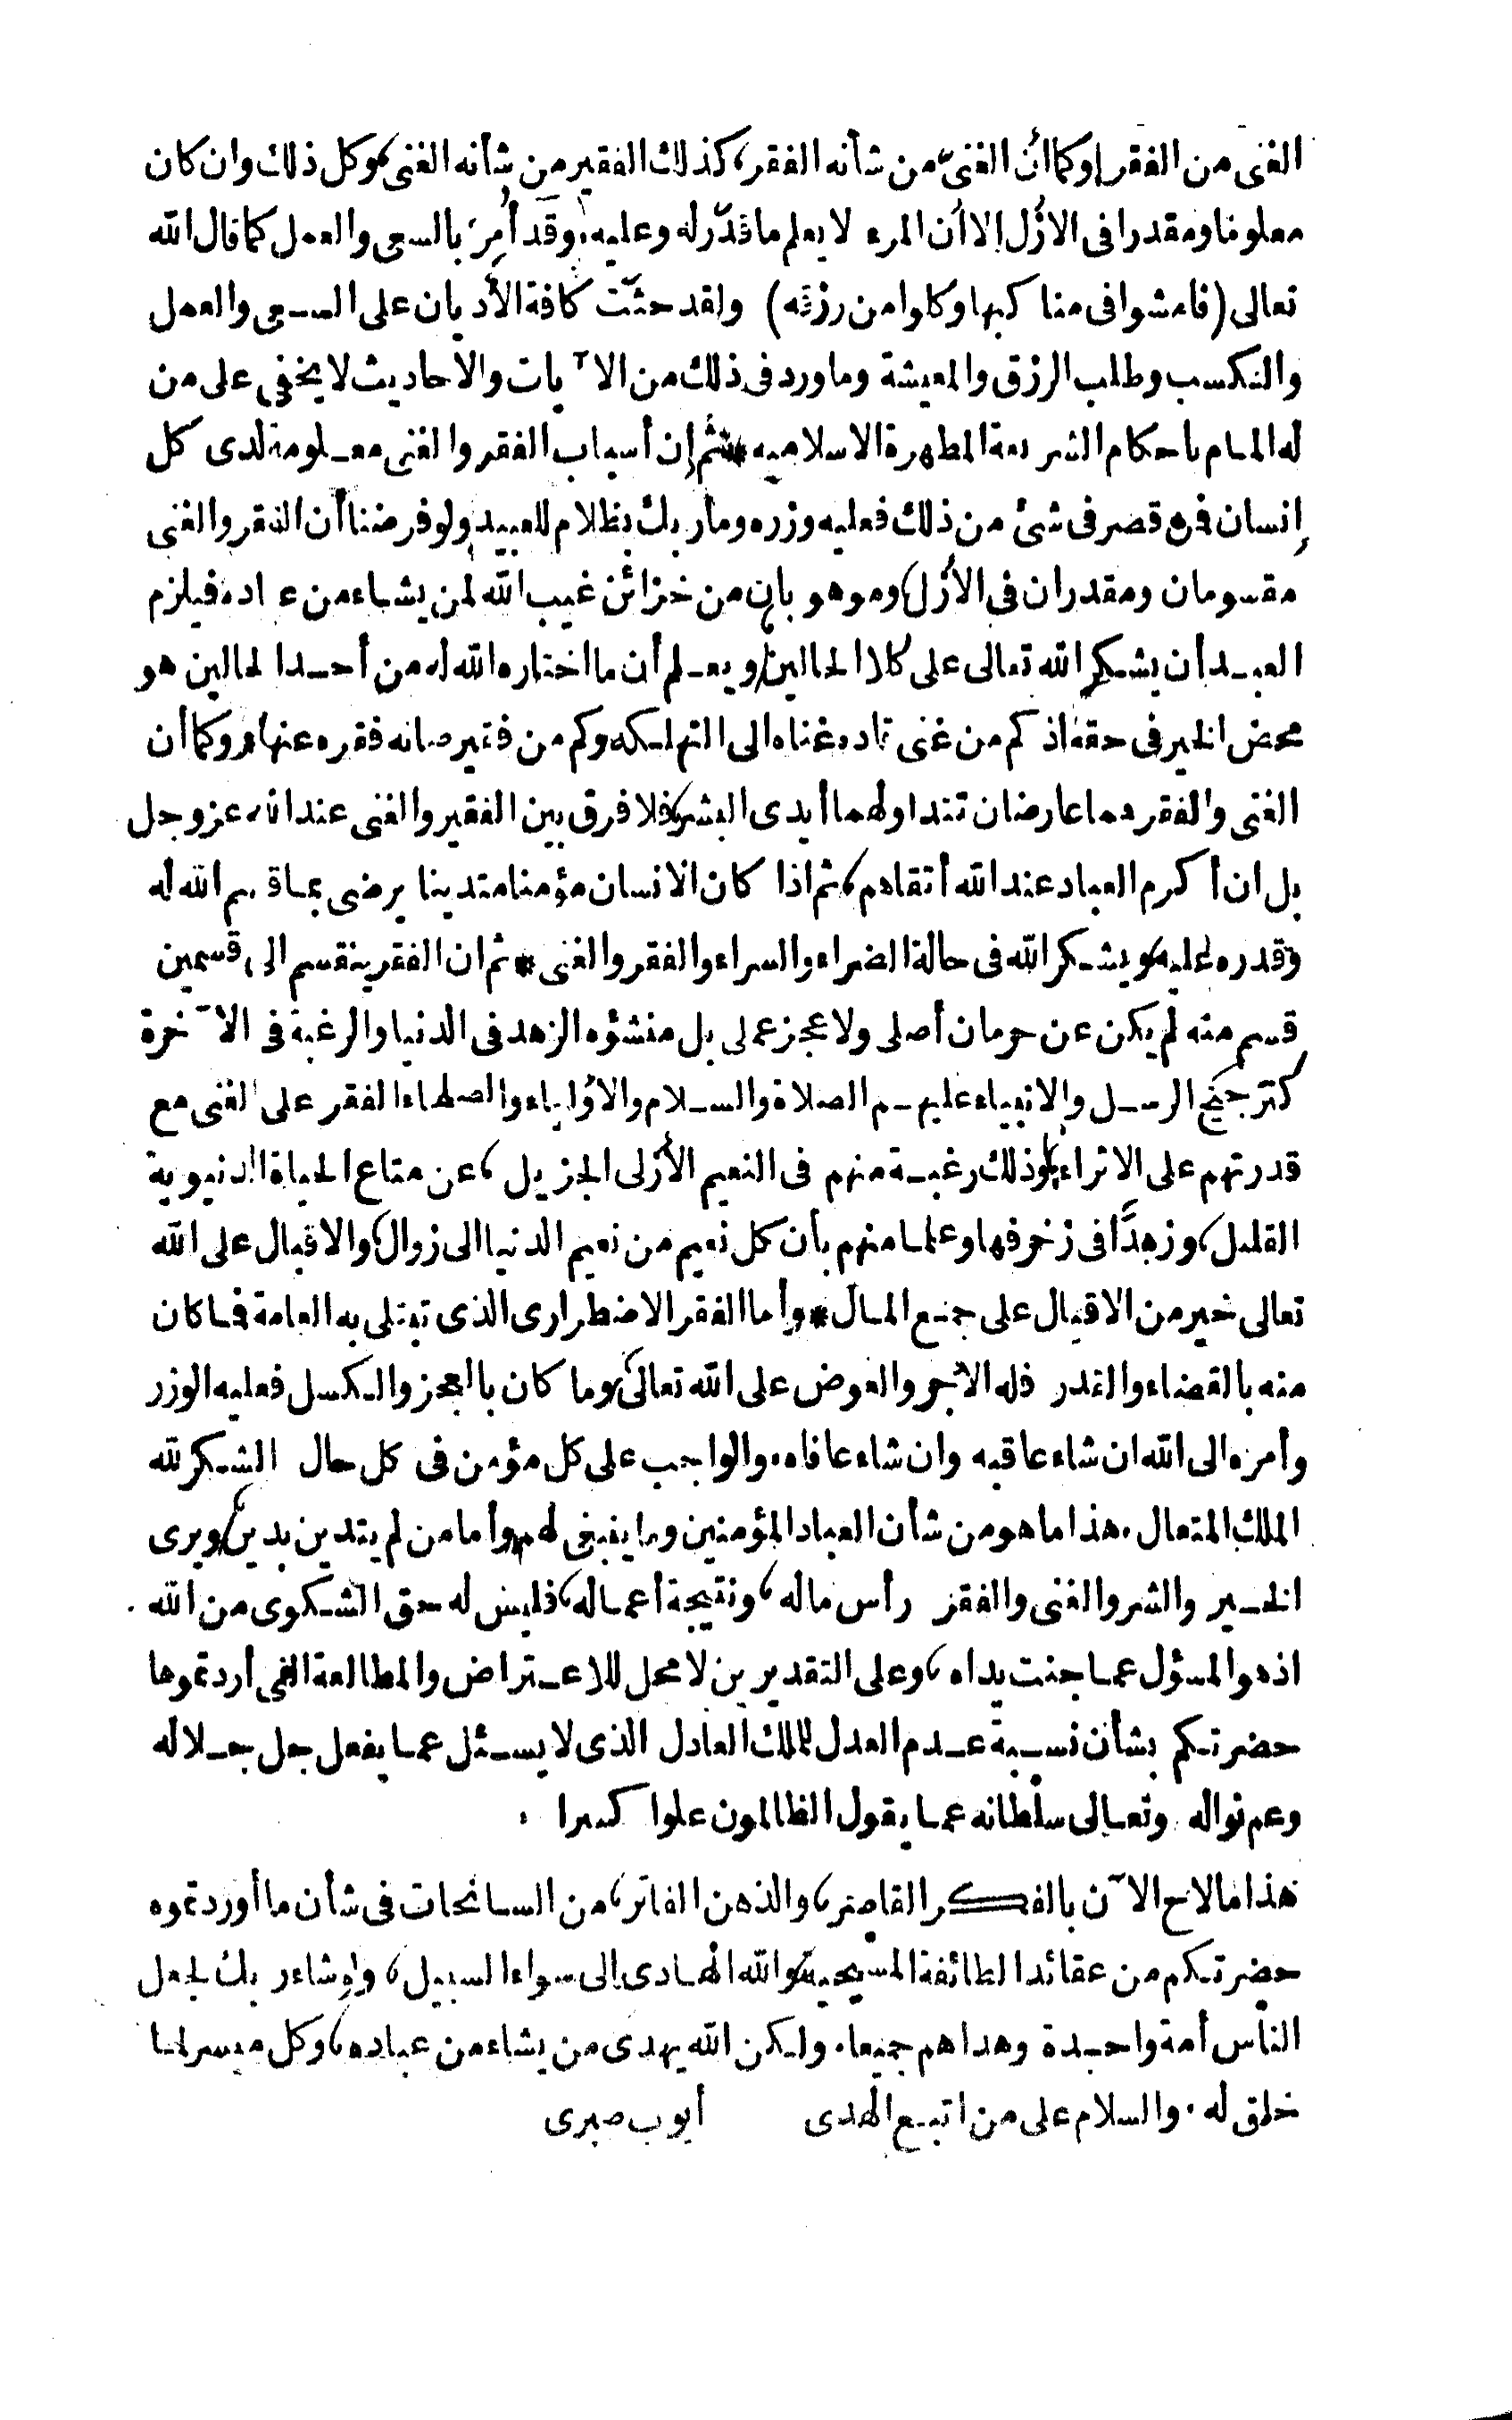 الغنى من الفقر وكما أن الغنىّ من شأنه الفقر، كذلك الفقير من شأنه الغنى، وكل ذلك وان كان
معلوما ومقدرا فى الازل إلا أن المرء لا يعلم ما قدّر له وعليه، وقد أُمِرَ بالسعى والعمل كما قال الله
تعالى (فامشوا فى مناكبها وكلوا من رزقه) ولقد حثّت كافة الأديان على السعى والعمل
والتكسب وطلب الرزق والمعيشة وما ورد فى ذلك من الآيات والأحاديث لا يخفى على من
له المام باحكام الشريعة المطهرة الاسلاميه * ثم إن أسباب الفقر والغنى معلومة لدى كل
إنسان فمن قصر فى شئ من ذلك فعليه وزره وما ربك بظلام للعبيد ولو فرضنا أن الفقر والغنى
مقسومان ومقدران فى الأزل، وموهوبان من خزائن غيب الله لمن يشاء من عباده فيلزم
العبد أن يشكر الله تعالى على كلا الحالين، ويعلم أن ما اختاره الله له من أحد الحالين هو
محض الخير فى حقه اذ كم من غنى قاده غناه الى التهلكه وكم من فقير صانه فقره عنها، وكما أن
الغنى والفقر هما عارضان تتداولهما أيدى البشر، فلا فرق بين الفقير والغنى عند الله عز وجل
بل ان أكرم العباد عند الله أتقاهم، ثم اذا كان الانسان مؤمنا متدينا يرضى بما قسم الله له
وقدره عليه، ويشكر الله فى حالة الضراء والسراء والفقر والغنى * ثم ان الفقر ينقسم الى قسمين
قسم منه لم يكن عن حرمان أصلى ولا عجز عملى بل منشؤه الزهد فى الدنيا والرغبة فى الآخرة
كترجيح الرسل والانبياء عليهم الصلاة والسلام والأولياء والصلحاء الفقر على الغنى مع
قدرتهم على الاثراء، وذلك رغبة منهم فى النعيم الأزلى الجزيل، عن متاع الحياة الدنيوية
القليل، وزهدًا فى زخرفها وعلما منهم بأن كل نعيم من نعيم الدنيا الى زوال، والاقبال على الله
تعالى خير من الاقبال على جمع المال * وأما الفقر الاضطرارى الذى تبتلى به العامة فما كان
منه بالقضاء والقدر فله الأجر والعوض على الله تعالى، وما كان بالعجز والكسل فعليه الوزر
وأمره الى الله ان شاء عاقبه وان شاء عافاه. والواجب على كل مؤمن فى كل حال الشكر لله
الملك المتعال. هذا ما هو من شأن العباد المؤمنين وما ينبغى لهم، وأما من لم يتدين بدين، ويرى
الخير والشر والغنى والفقر رأس ماله، ونتيجة أعماله، فليس له حق الشكوى من الله
اذ هو المسؤل عما جنت يداه، وعلى التقديرين لا محل للاعتراض والمطالعة التى أردتموها
حضرتكم بشأن نسبة عدم العدل للملك العادل الذى لا يسئل عما يفعل جل جلاله
وعم نواله وتعالى سلطانه عما يقول الظالمون علوا كبيرا .
هذا ما لاح الآن بالفكر القاصر، والذهن الفاتر، من السانحات فى شأن ما أوردتموه
حضرتكم من عقائد الطائفة المسيحية، والله الهادى الى سواء السبيل، ولو شاء ربك لجعل
الناس أمة واحدة وهداهم جميعا. ولكن الله يهدى من يشاء من عباده، وكل ميسر لما
خلق له. والسلام على من اتبع الهدى أيوب صبرى